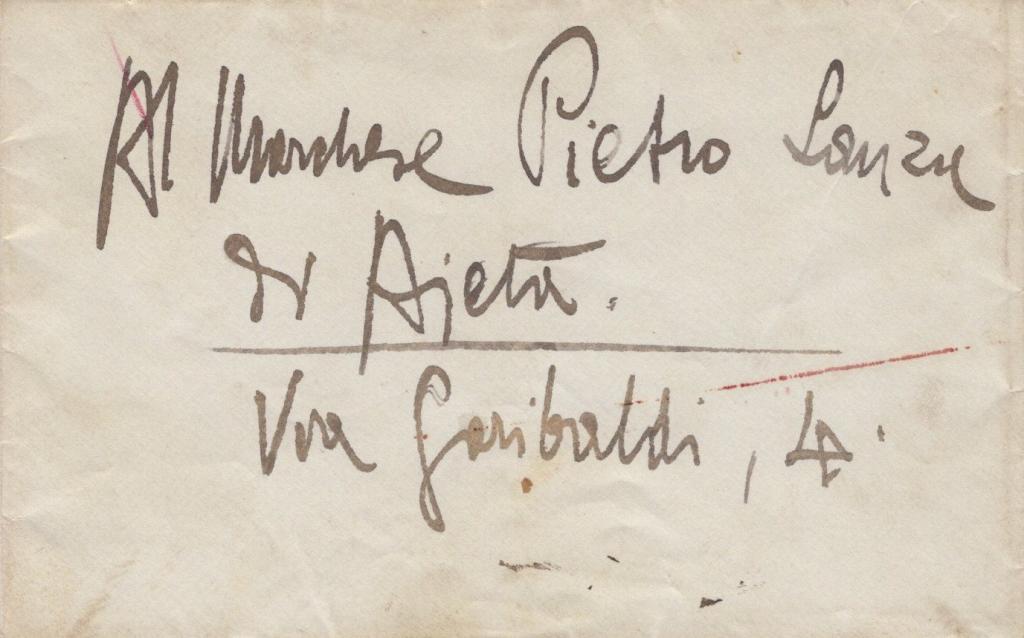 Al Marchese Pietro Lanza
di Ajeta.
Via Garibaldi, 4.